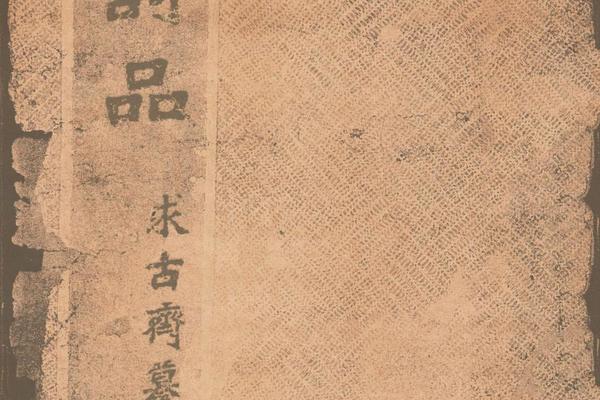 品
求古齋